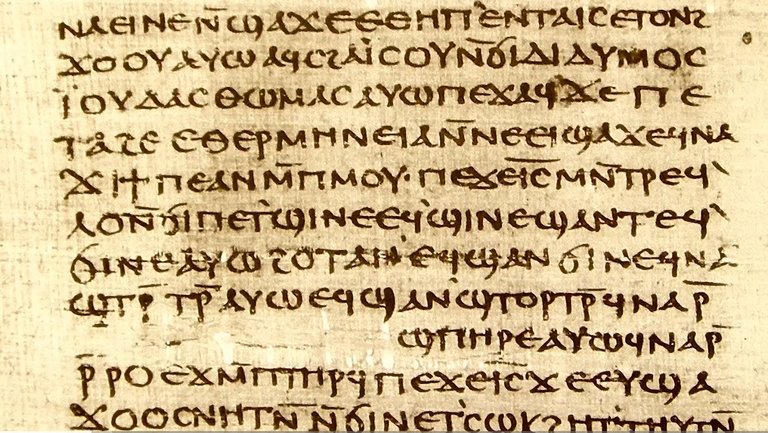 ⲛⲁⲉⲓⲛⲉⲛ̄ϣⲁϫⲉⲉⲑⲏⲡ`ⲉⲛⲧⲁⲓ̅ⲥ̅ⲉⲧⲟⲛϩ
ϫⲟⲟⲩⲁⲩⲱⲁϥⲥϩⲁⲓ̈ⲥⲟⲩⲛ̄ϭⲓⲇⲓⲇⲩⲙⲟⲥ
ⲓ̈ⲟⲩⲇⲁⲥⲑⲱⲙⲁⲥⲁⲩⲱⲡⲉϫⲁϥϫⲉⲡⲉ
ⲧⲁϩⲉⲉⲑⲉⲣⲙⲏⲛⲉⲓⲁⲛ̄ⲛⲉⲉⲓϣⲁϫⲉϥⲛⲁ
ϫⲓϯⲡⲉⲁⲛⲙ̄ⲡⲙⲟⲩ·ⲡⲉϫⲉⲓ̅ⲥ̅ⲙⲛ̄ⲧⲣⲉϥ`
ⲗⲟⲛ̄ϭⲓⲡⲉⲧ`ϣⲓⲛⲉⲉϥ`ϣⲓⲛⲉϣⲁⲛⲧⲉϥ`
ϭⲓⲛⲉⲁⲩⲱϩⲟⲧⲁⲛ`ⲉϥϣⲁⲛϭⲓⲛⲉϥⲛⲁ
ϣⲧⲣ̄ⲧⲣ̄ⲁⲩⲱⲉϥϣⲁⲛ`ϣⲧⲟⲣⲧⲣ̄ϥⲛⲁⲣ̄
ϣⲡⲏⲣⲉⲁⲩⲱϥⲛⲁⲣ̄
ⲣ̄ⲣⲟⲉϫⲙ̄ⲡⲧⲏⲣϥ`ⲡⲉϫⲉⲓ̅ⲥ̅ϫⲉⲉⲩϣⲁ
ϫⲟⲟⲥⲛⲏⲧⲛ̄ⲛ̄ϭⲓⲛⲉⲧ`ⲥⲱⲕϩⲏⲧ`ⲧⲏⲩⲧⲛ̄